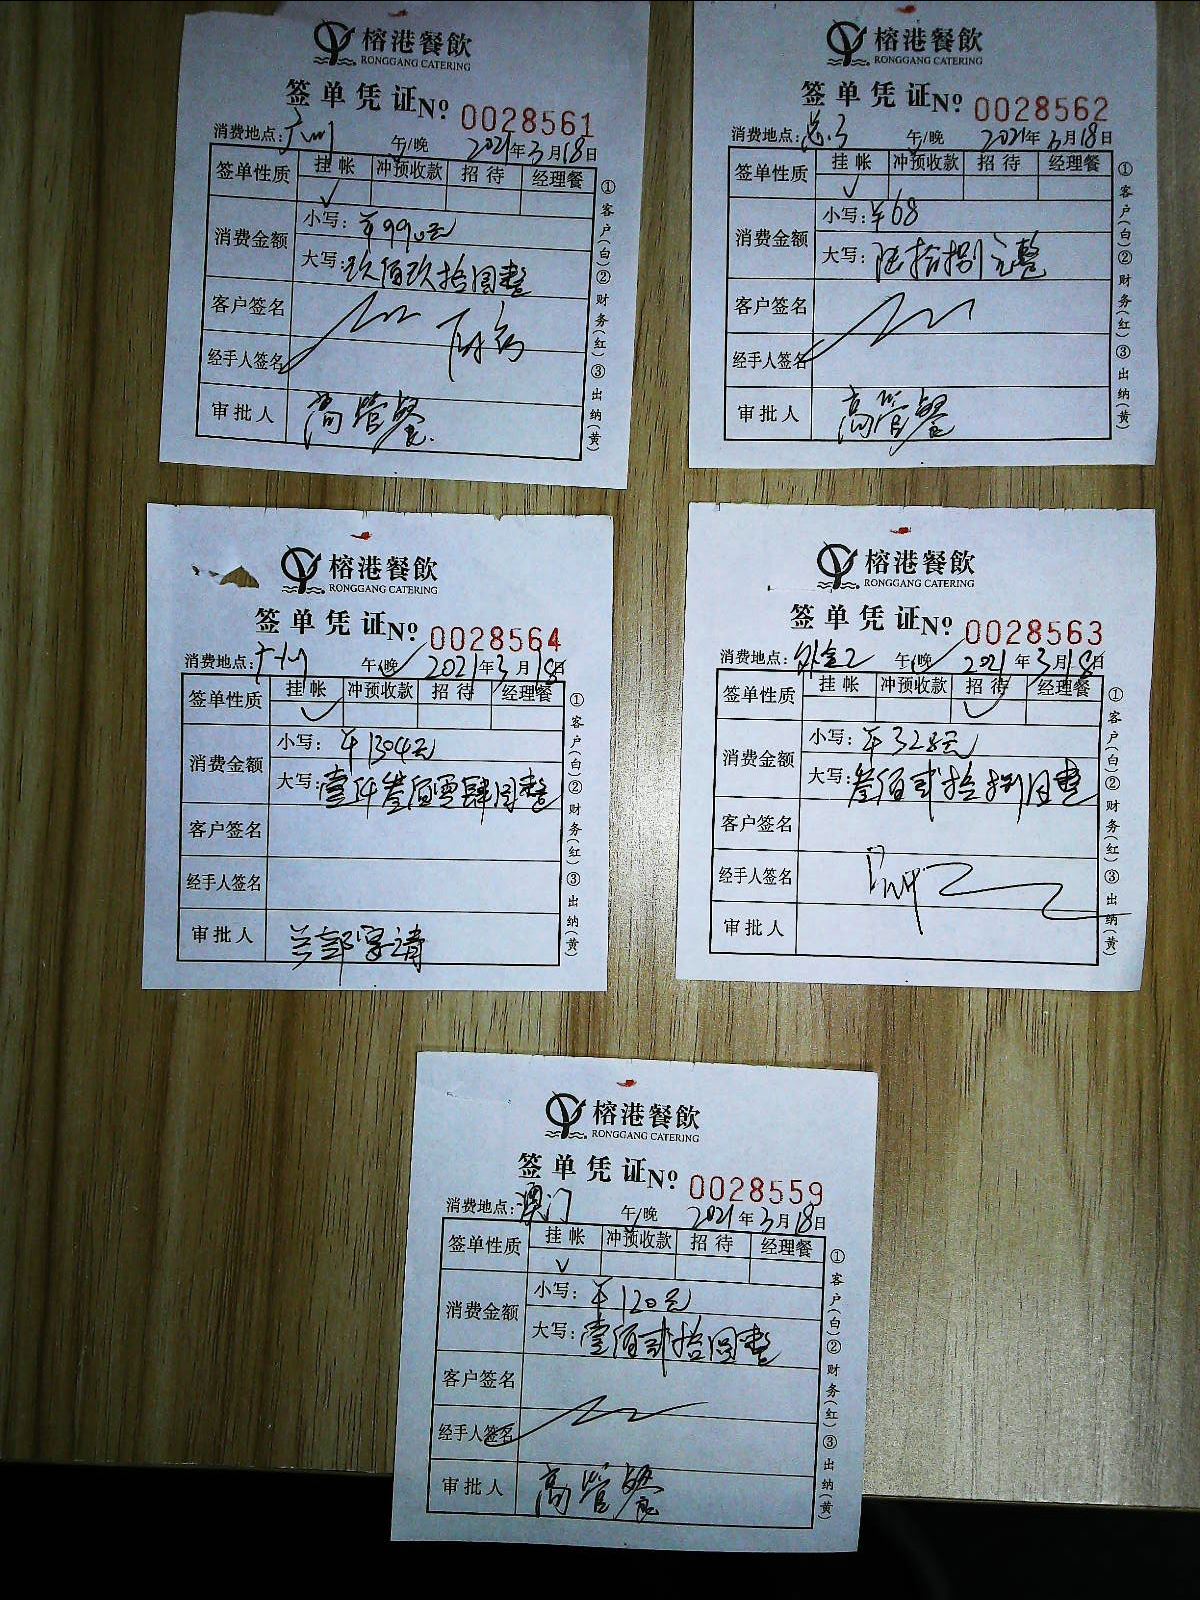 榕港餐飲
RONGGANG CATERING
签单凭证 Nº 0028561
消费地点：广州 午/晚 2021年3月18日
签单性质 挂帐 冲预收款 招待 经理餐
消费金额
小写：¥990元
大写：玖佰玖拾圆整
客户签名
经手人签名
审批人 高管餐
①客户(白)②财务(红)③出纳(黄)
榕港餐飲
RONGGANG CATERING
签单凭证 Nº 0028562
消费地点： 午/晚 2021年3月18日
签单性质 挂帐 冲预收款 招待 经理餐
消费金额
小写：¥68
大写：陆拾捌元整
客户签名
经手人签名
审批人 高管餐
①客户(白)②财务(红)③出纳(黄)
榕港餐飲
RONGGANG CATERING
签单凭证 Nº 0028564
消费地点：广州 午/晚 2021年3月18日
签单性质 挂帐 冲预收款 招待 经理餐
消费金额
小写：¥1304元
大写：壹仟叁佰零肆圆整
客户签名
经手人签名
审批人
①客户(白)②财务(红)③出纳(黄)
榕港餐飲
RONGGANG CATERING
签单凭证 Nº 0028563
消费地点： 午/晚 2021年3月18日
签单性质 挂帐 冲预收款 招待 经理餐
消费金额
小写：¥328元
大写：叁佰贰拾捌圆整
客户签名
经手人签名
审批人
①客户(白)②财务(红)③出纳(黄)
榕港餐飲
RONGGANG CATERING
签单凭证 Nº 0028559
消费地点：澳门 午/晚 2021年3月18日
签单性质 挂帐 冲预收款 招待 经理餐
消费金额
小写：¥120元
大写：壹佰贰拾圆整
客户签名
经手人签名
审批人 高管餐
①客户(白)②财务(红)③出纳(黄)